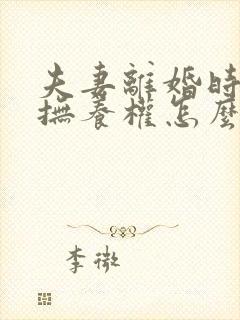 夫妻離婚時
撫養權怎麼
李微